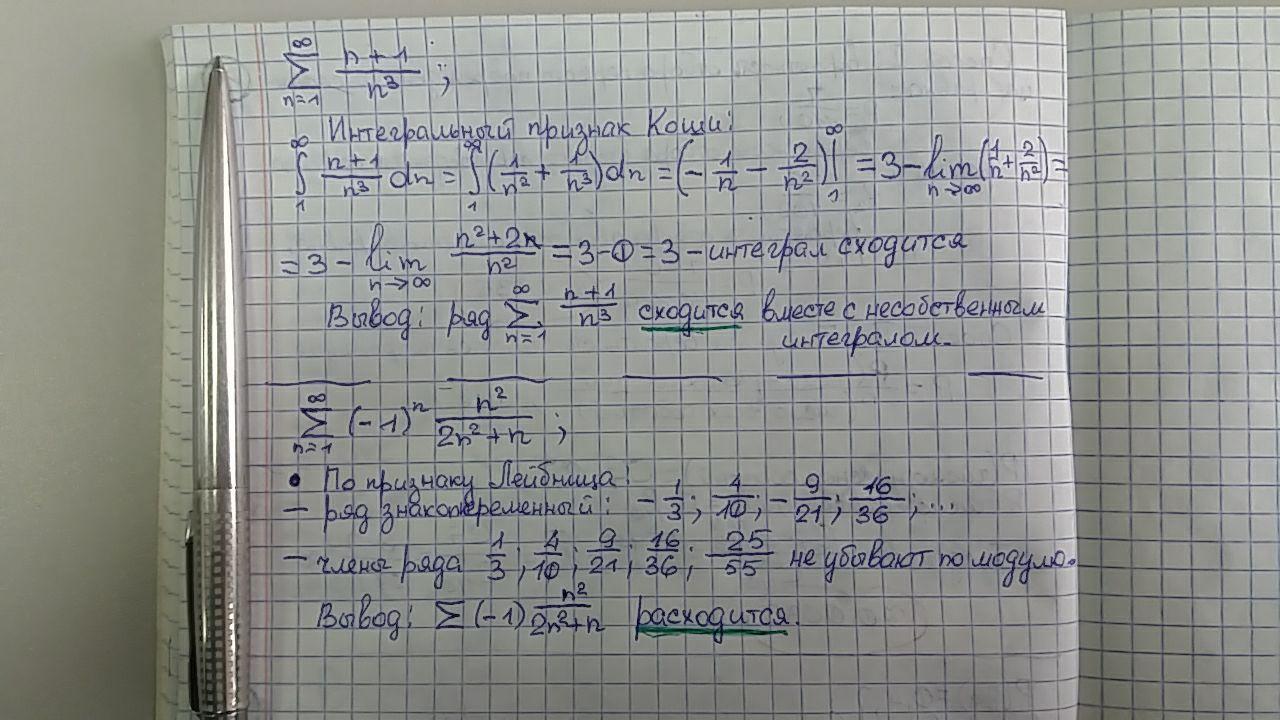 ∞∑n=1 (n+1)/n³ ;
Интегральный признак Коши:
∫₁^∞ (n+1)/n³ dn = ∫₁^∞ (1/n² + 1/n³) dn = (- 1/n - 2/n²)|₁^∞ = 3 - lim n→∞ (1/n + 2/n²) =
= 3 - lim n→∞ (n²+2n)/n² = 3-0 = 3 - интеграл сходится
Вывод: ряд ∞∑n=1 (n+1)/n³ сходится вместе с несобственным
интегралом.
∞∑n=1 (-1)ⁿ n²/(2n²+n) ;
• По признаку Лейбница:
— ряд знакопеременный: - 1/3; 4/10; - 9/21; 16/36; ....
— члены ряда 1/3; 4/10; 9/21; 16/36; 25/55 не убывают по модулю.
Вывод: ∑ (-1) n²/(2n²+n) расходится.